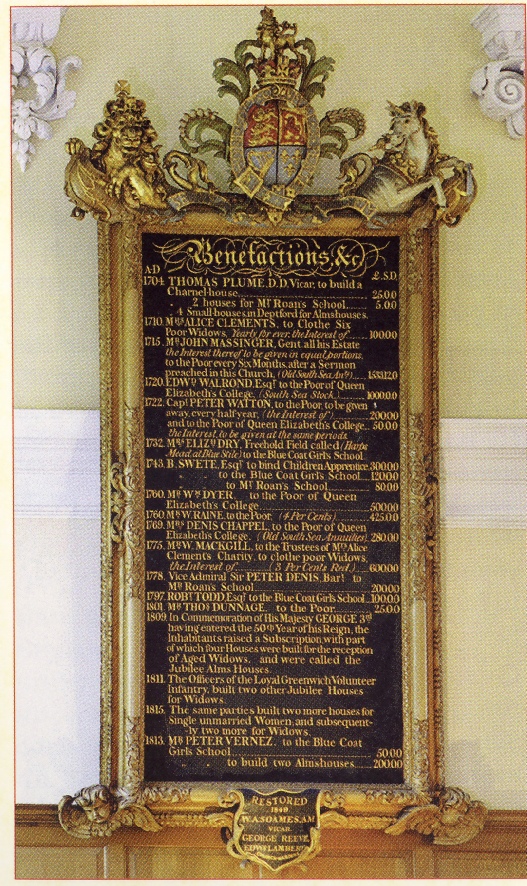 Benefactions, &c
A·D £.S.D.
1704 THOMAS PLUME, D.D. Vicar, to build a
Charnel-house 25.0.0
2 houses for Mr Roan's School 5.0.0
4 Small houses, in Deptford for Almshouses.
1710. Mrs ALICE CLEMENTS, to Clothe Six
Poor Widows, Yearly for ever, the Interest of 100.0.0
1715. Mr JOHN MASSINGER, Gent, all his Estate
the Interest thereof to be given in equal portions,
to the Poor every Six Months, after a Sermon
preached in this Church, (Old South Sea Ans)
1720. EDWD WALROND, Esqr to the Poor of Queen
Elizabeth's College, (South Sea Stock) 1000.0.0
1722. Capt PETER WATTON, to the Poor, to be given
away, every half year, (the Interest of) 200.0.0
and to the Poor of Queen Elizabeth's College 50.0.0
the Interest to be given at the same periods
1732. Mrs ELIZth DRY, Freehold Field called (Harps
Mead, at Blue Stile) to the Blue Coat Girls School.
1743. B. SWETE, Esqr to bind Children Apprentice 300.0.0
to the Blue Coat Girls School 120.0.0
to Mr Roan's School 80.0.0
1760. Mr Wm DYER, to the Poor of Queen
Elizabeth's College 500.0.0
1760. Mr W. RAINE, to the Poor, (4 Per Cents) 425.0.0
1769. Mrs DENIS CHAPPEL, to the Poor of Queen
Elizabeth's College, (Old South Sea Annuities) 280.0.0
1775. Mr W. MACKGILL, to the Trustees of Mrs Alice
Clement's Charity, to clothe poor Widows,
the Interest of (3 Per Cents Red.) 600.0.0
1778. Vice Admiral Sir PETER DENIS, Bart to
Mr Roan's School 200.0.0
1797. ROBt TODD, Esqr to the Blue Coat Girls School 100.0.0
1801. Mr THOs DUNNAGE, to the Poor 25.0.0
1809. In Commemoration of His Majesty GEORGE 3rd
having entered the 50th Year of his Reign, the
Inhabitants raised a Subscription with part
of which four Houses were built for the reception
of Aged Widows, and were called the
Jubilee Alms Houses.
1811. The Officers of the Loyal Greenwich Volunteer
Infantry, built two other Jubilee Houses
for Widows.
1815. The same parties built two more houses for
Single unmarried Women, and subsequent-
ly two more for Widows.
1813. Mr PETER VERNEZ, to the Blue Coat
Girls School 50.0.0
to build two Almshouses 200.0.0
RESTORED
1849
W.A. SOAMES, A.M
VICAR.
GEORGE REEVE,
EDWD LAMBERT